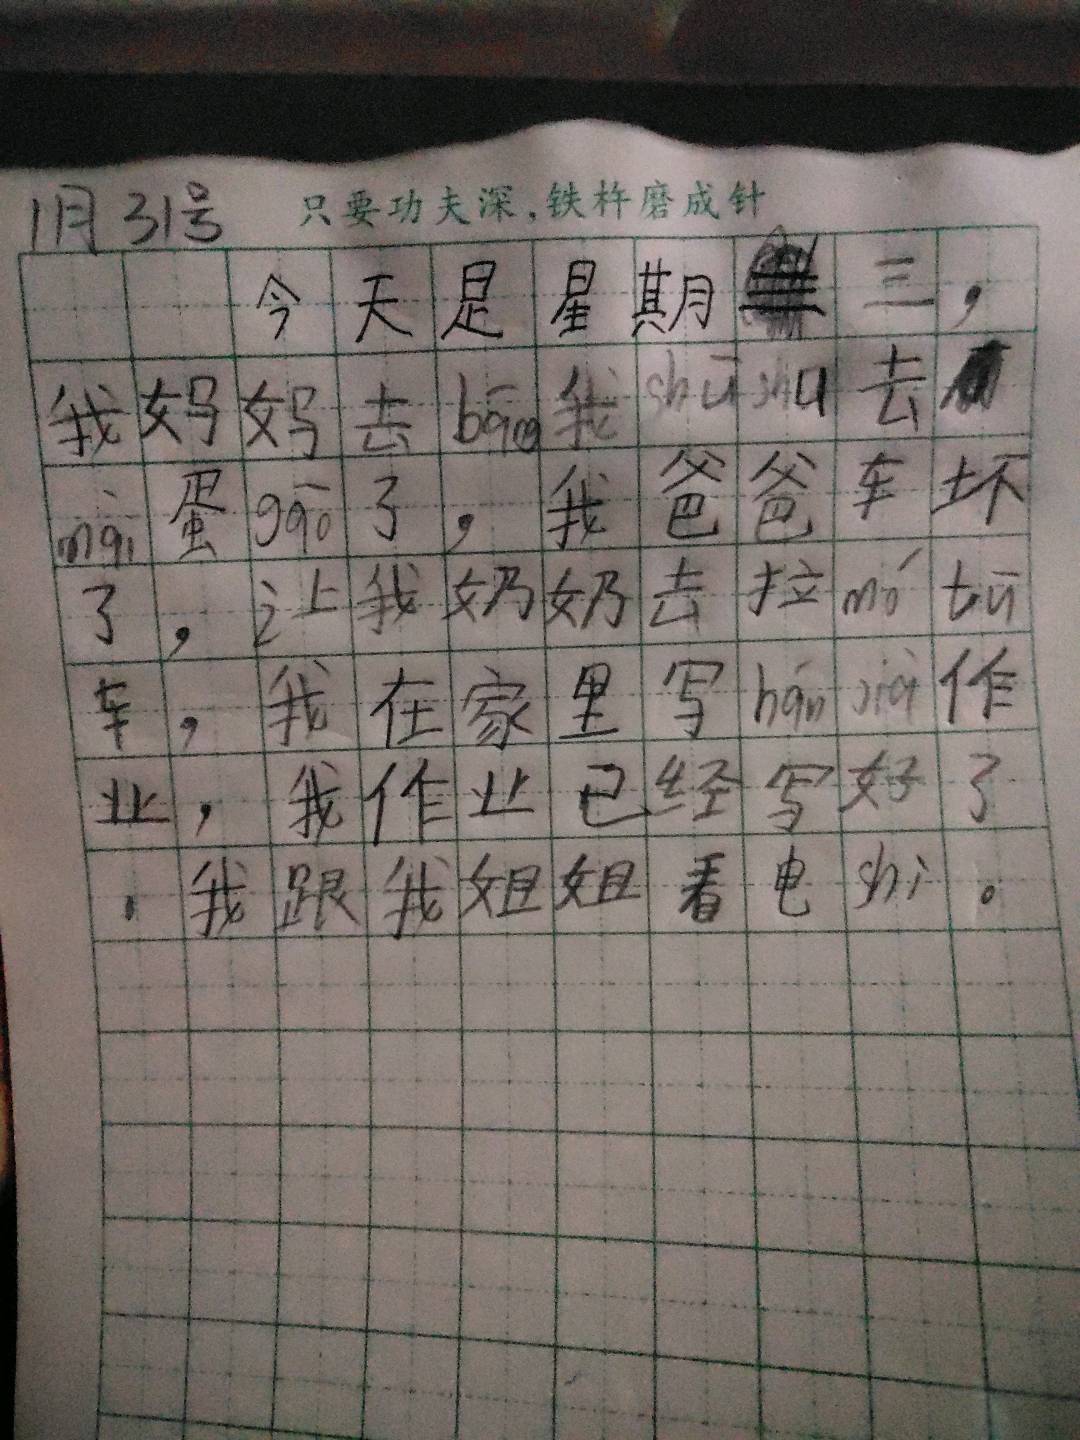 1月31号 只要功夫深,铁杵磨成针
今天是星期三,
我妈妈去bāng我shū shu去
mài蛋gāo了,我爸爸车坏
了,让我奶奶去拉mó tū
车,我在家里写hán jià作
业,我作业已经写好了
,我跟我姐姐看电shì。